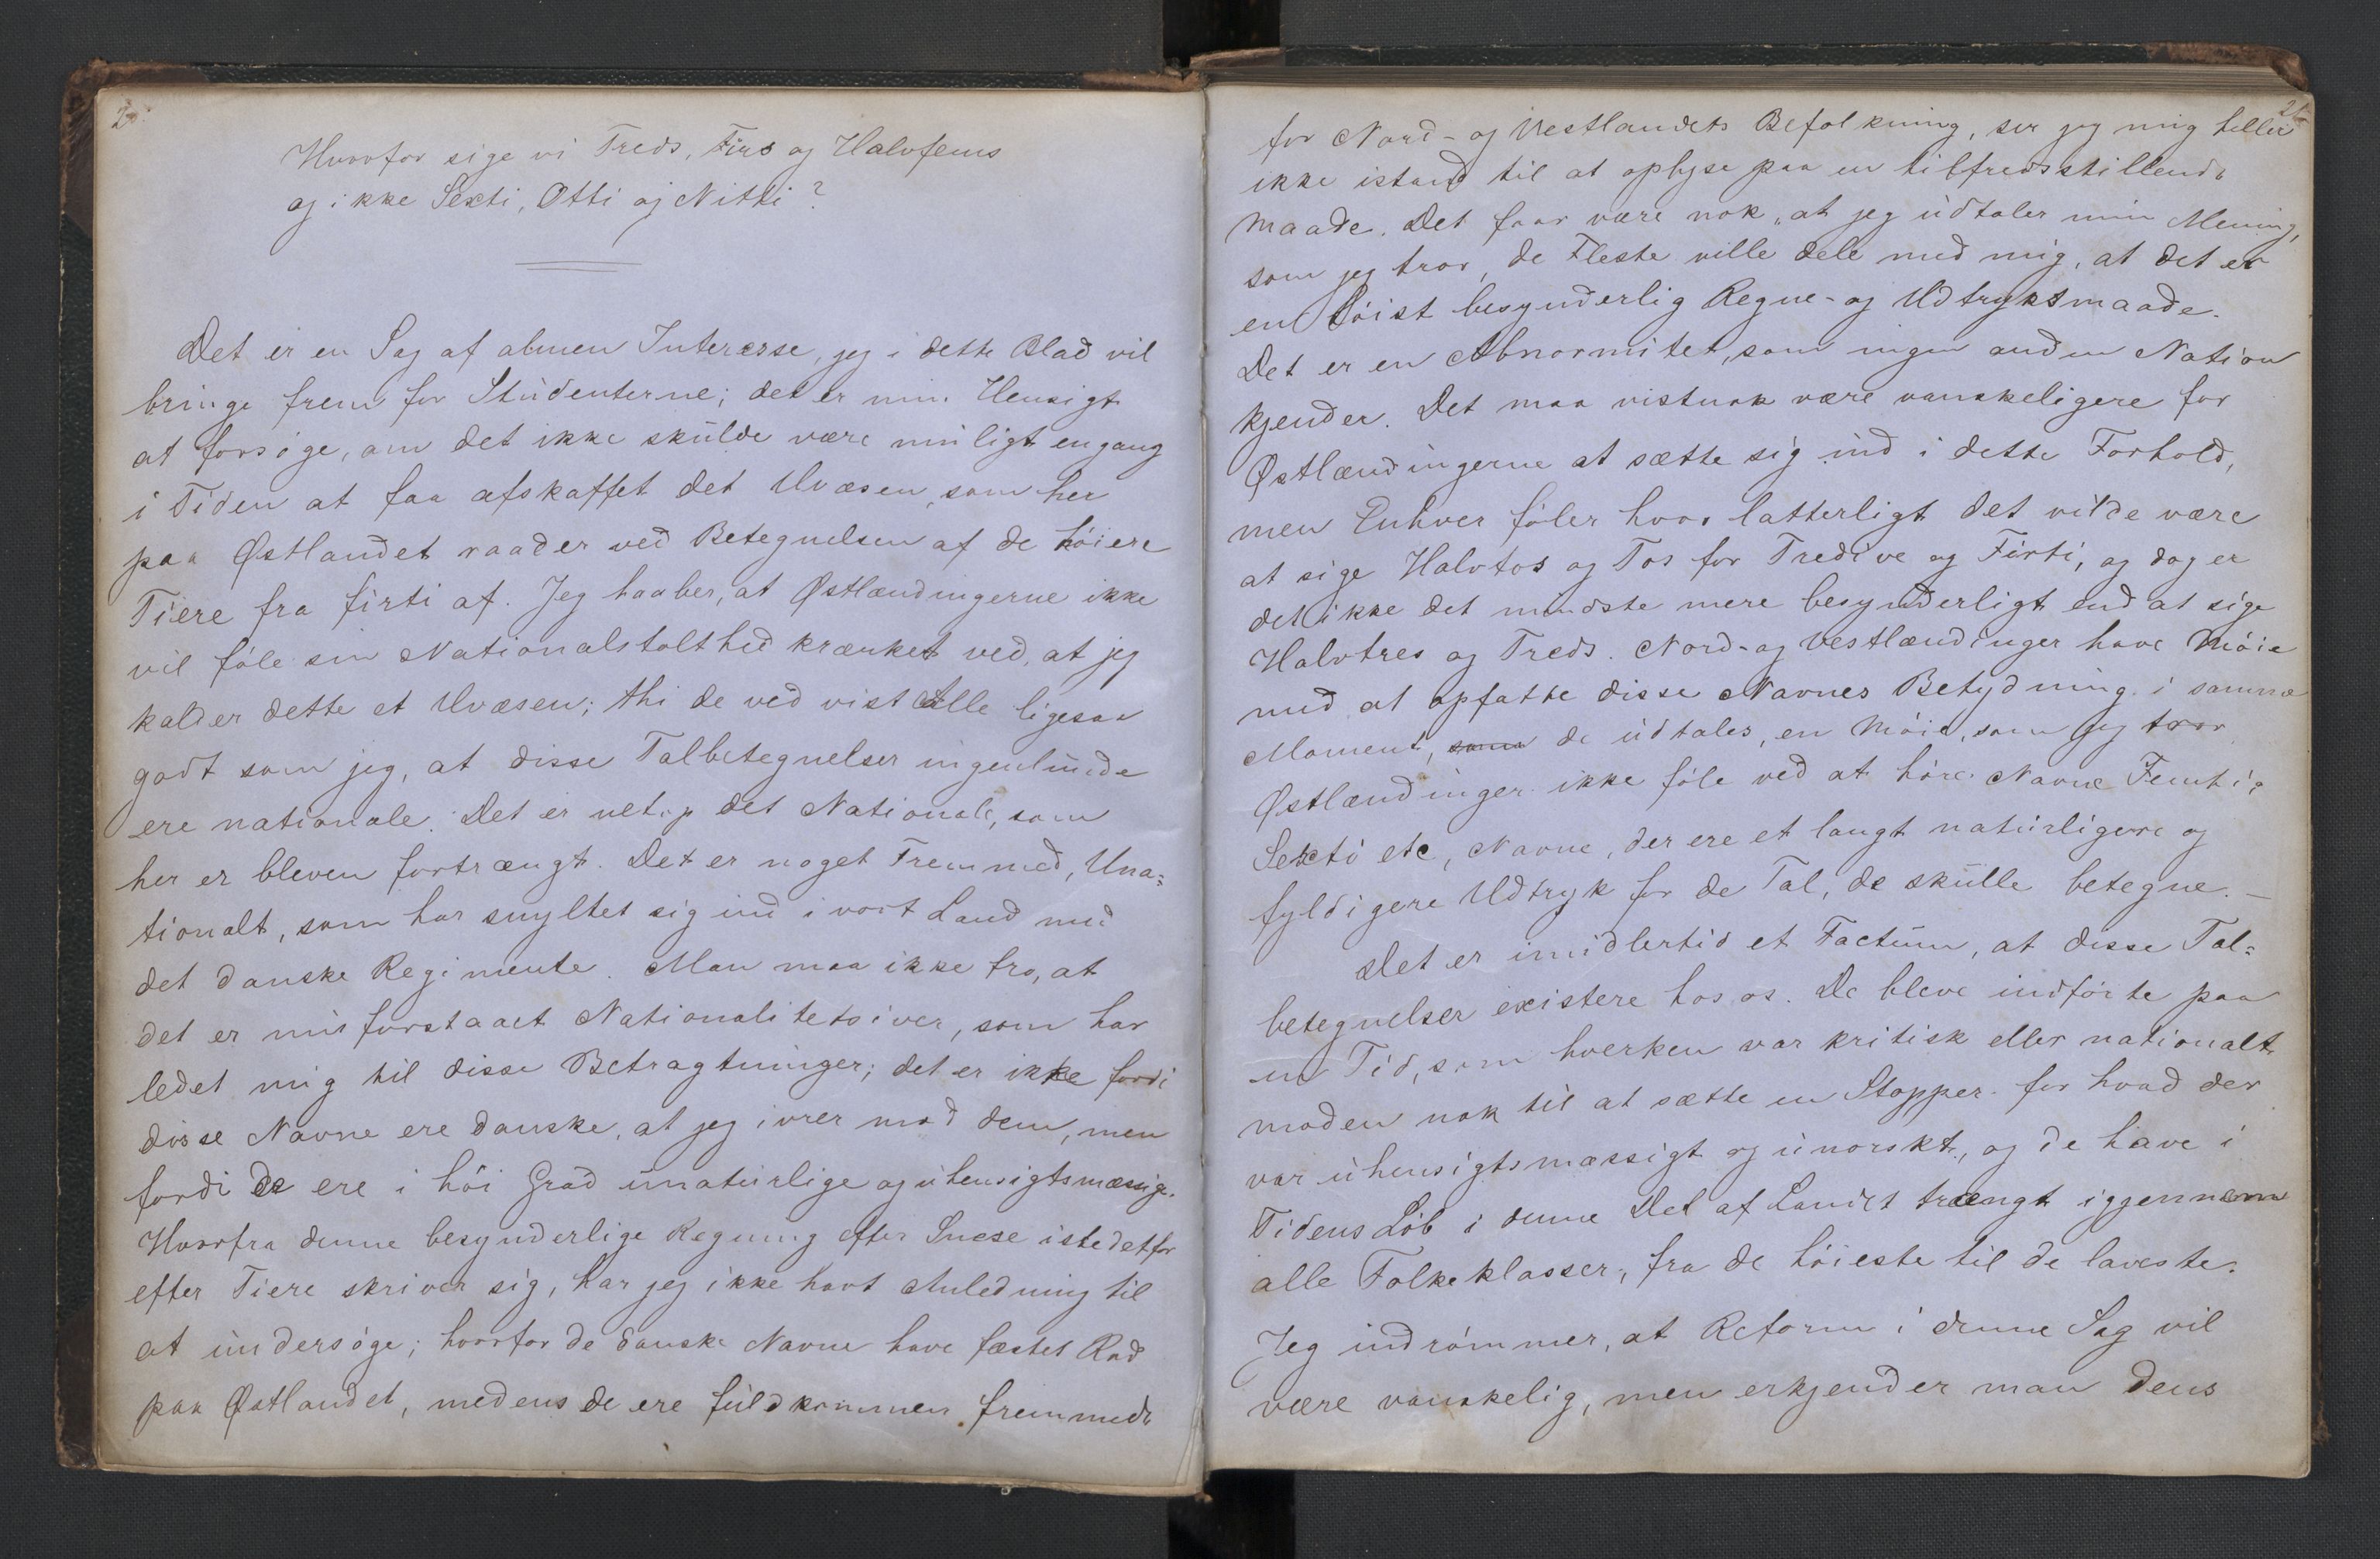 Hvorfor sige vi Treds, Firs og Halvfems
og ikke Sexti, Otti og Nitti?
Det er en Sag af almen Interesse, jeg i dette Blad vil
bringe frem for Studenterne; det er min Hensigt
at forsöge, om det ikke skulde være muligt engang
i Tiden at faa afskaffet det Uvæsen, som her
paa Østlandet raader ved Betegnelsen af de höiere
Tiere fra firti af. Jeg haaber, at Østlændingerne ikke
vil föle sin Nationalstolthed krænket ved, at jeg
kalder dette et Uvæsen; thi de ved vist Alle ligesaa
godt som jeg, at disse Talbetegnelser ingenlunde
ere nationale. Det er netop det Nationale, som
her er bleven fortrængt. Det er noget Fremmed, Una=
tionalt, som har snyltet sig ind i vort Land med
det danske Regimente. Man maa ikke tro, at
det er misforstaaet Nationalitetsiver, som har
ledet mig til disse Betragtninger; det er ikke fordi
disse Navne ere danske, at jeg ivrer mod dem, men
fordi de ere i höi Grad unaturlige og uhensigtsmæssige.
Hvorfra denne besynderlige Regning efter Snese istedetfor
efter Tiere skriver sig, har jeg ikke havt Anledning til
at undersöge; hvorfor de danske Navne have fæstet Rod
paa Østlandet, medens de ere fuldkommen fremmede
21.
for Nord- og Vestlandets Befolkning, ser jeg mig heller
ikke istand til at oplyse paa en tilfredsstillende
Maade. Det faar være nok, at jeg udtaler min Mening,
som jeg tror, de Fleste ville dele med mig, at det er
en höist besynderlig Regne- og Udtryksmaade.
Det er en Abnormitet, som ingen anden Nation
kjender. Det maa vistnok være vanskeligere for
Østlændingerne at sætte sig ind i dette Forhold,
men Enhver föler hvor latterligt det vilde være
at sige Halvtos og Tos for Tredive og Firti, og dog er
det ikke det mindste mere besynderligt end at sige
Halvtres og Treds. Nord- og Vestlændinger have Möie
med at opfatte disse Navnes Betydning i samme
Moment, som de udtales, en Möie, som jeg tror
Østlændinger ikke föle ved at höre Navne Femti,
Sexti etc, Navne, der ere et langt naturligere og
fyldigere Udtryk for de Tal, de skulle betegne. —
Det er imidlertid et Factum, at disse Tal=
betegnelser existere hos os. De bleve indförte paa
en Tid, som hverken var kritisk eller nationalt
moden nok til at sætte en Stopper for hvad der
var uhensigtsmæssigt og unorskt, og de have i
Tidens Löb i denne Del af Landet trængt igjennem
alle Folkeklasser, fra de höieste til de laveste.
Jeg indrömmer, at Reform i denne Sag vil
være vanskelig, men erkjender man dens